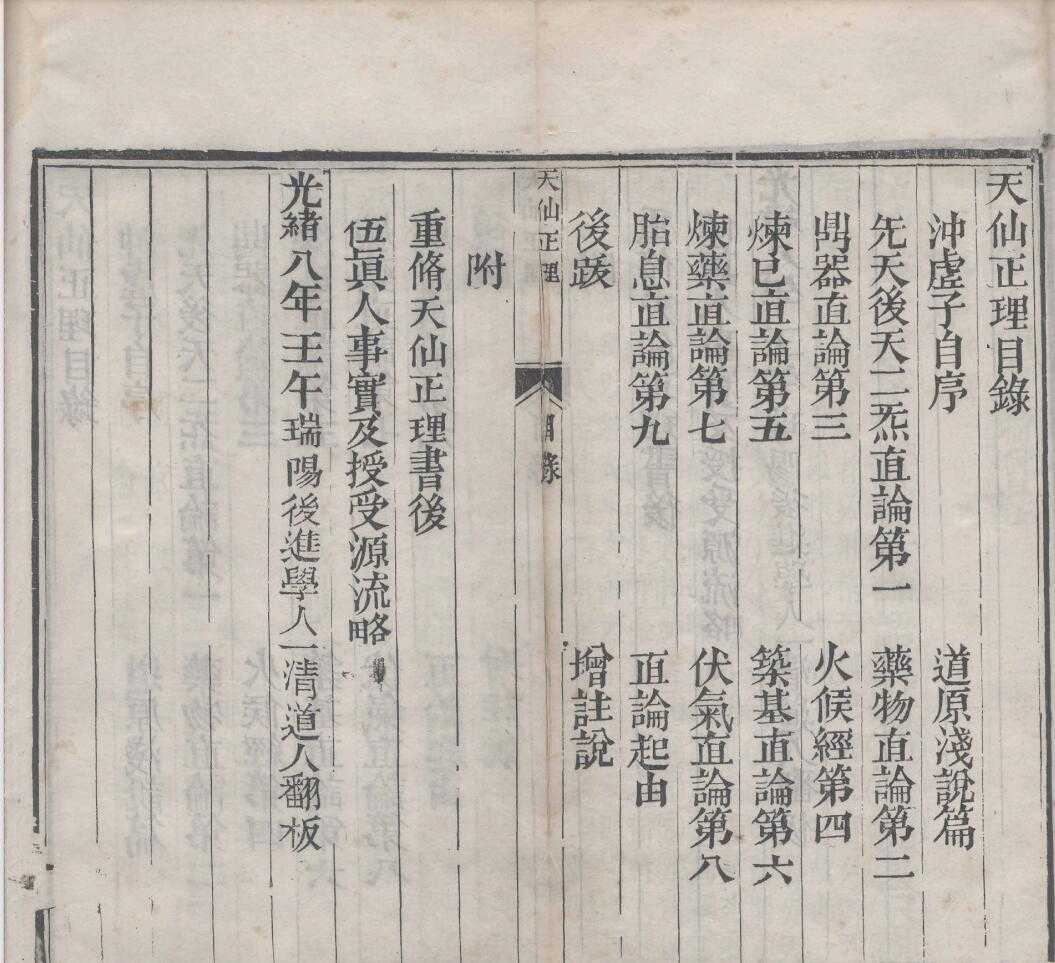 天仙正理目錄
沖虛子自序 道原淺說篇
旡天後天二炁直論第一 藥物直論第二
鼎器直論第三 火候經第四
煉已直論第五 築基直論第六
煉藥直論第七 伏氣直論第八
胎息直論第九 直論起由
後跋 增註說
天仙正理 目錄
附
重脩天仙正理書後
伍眞人事實及授受源流略
光緒八年壬午瑞陽後進學人一清道人翻板